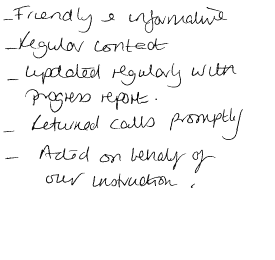 - Friendly & informative
- Regular contact
- Updated regularly with
progress report.
- Returned calls promptly
- Acted on behalf of
our instruction.